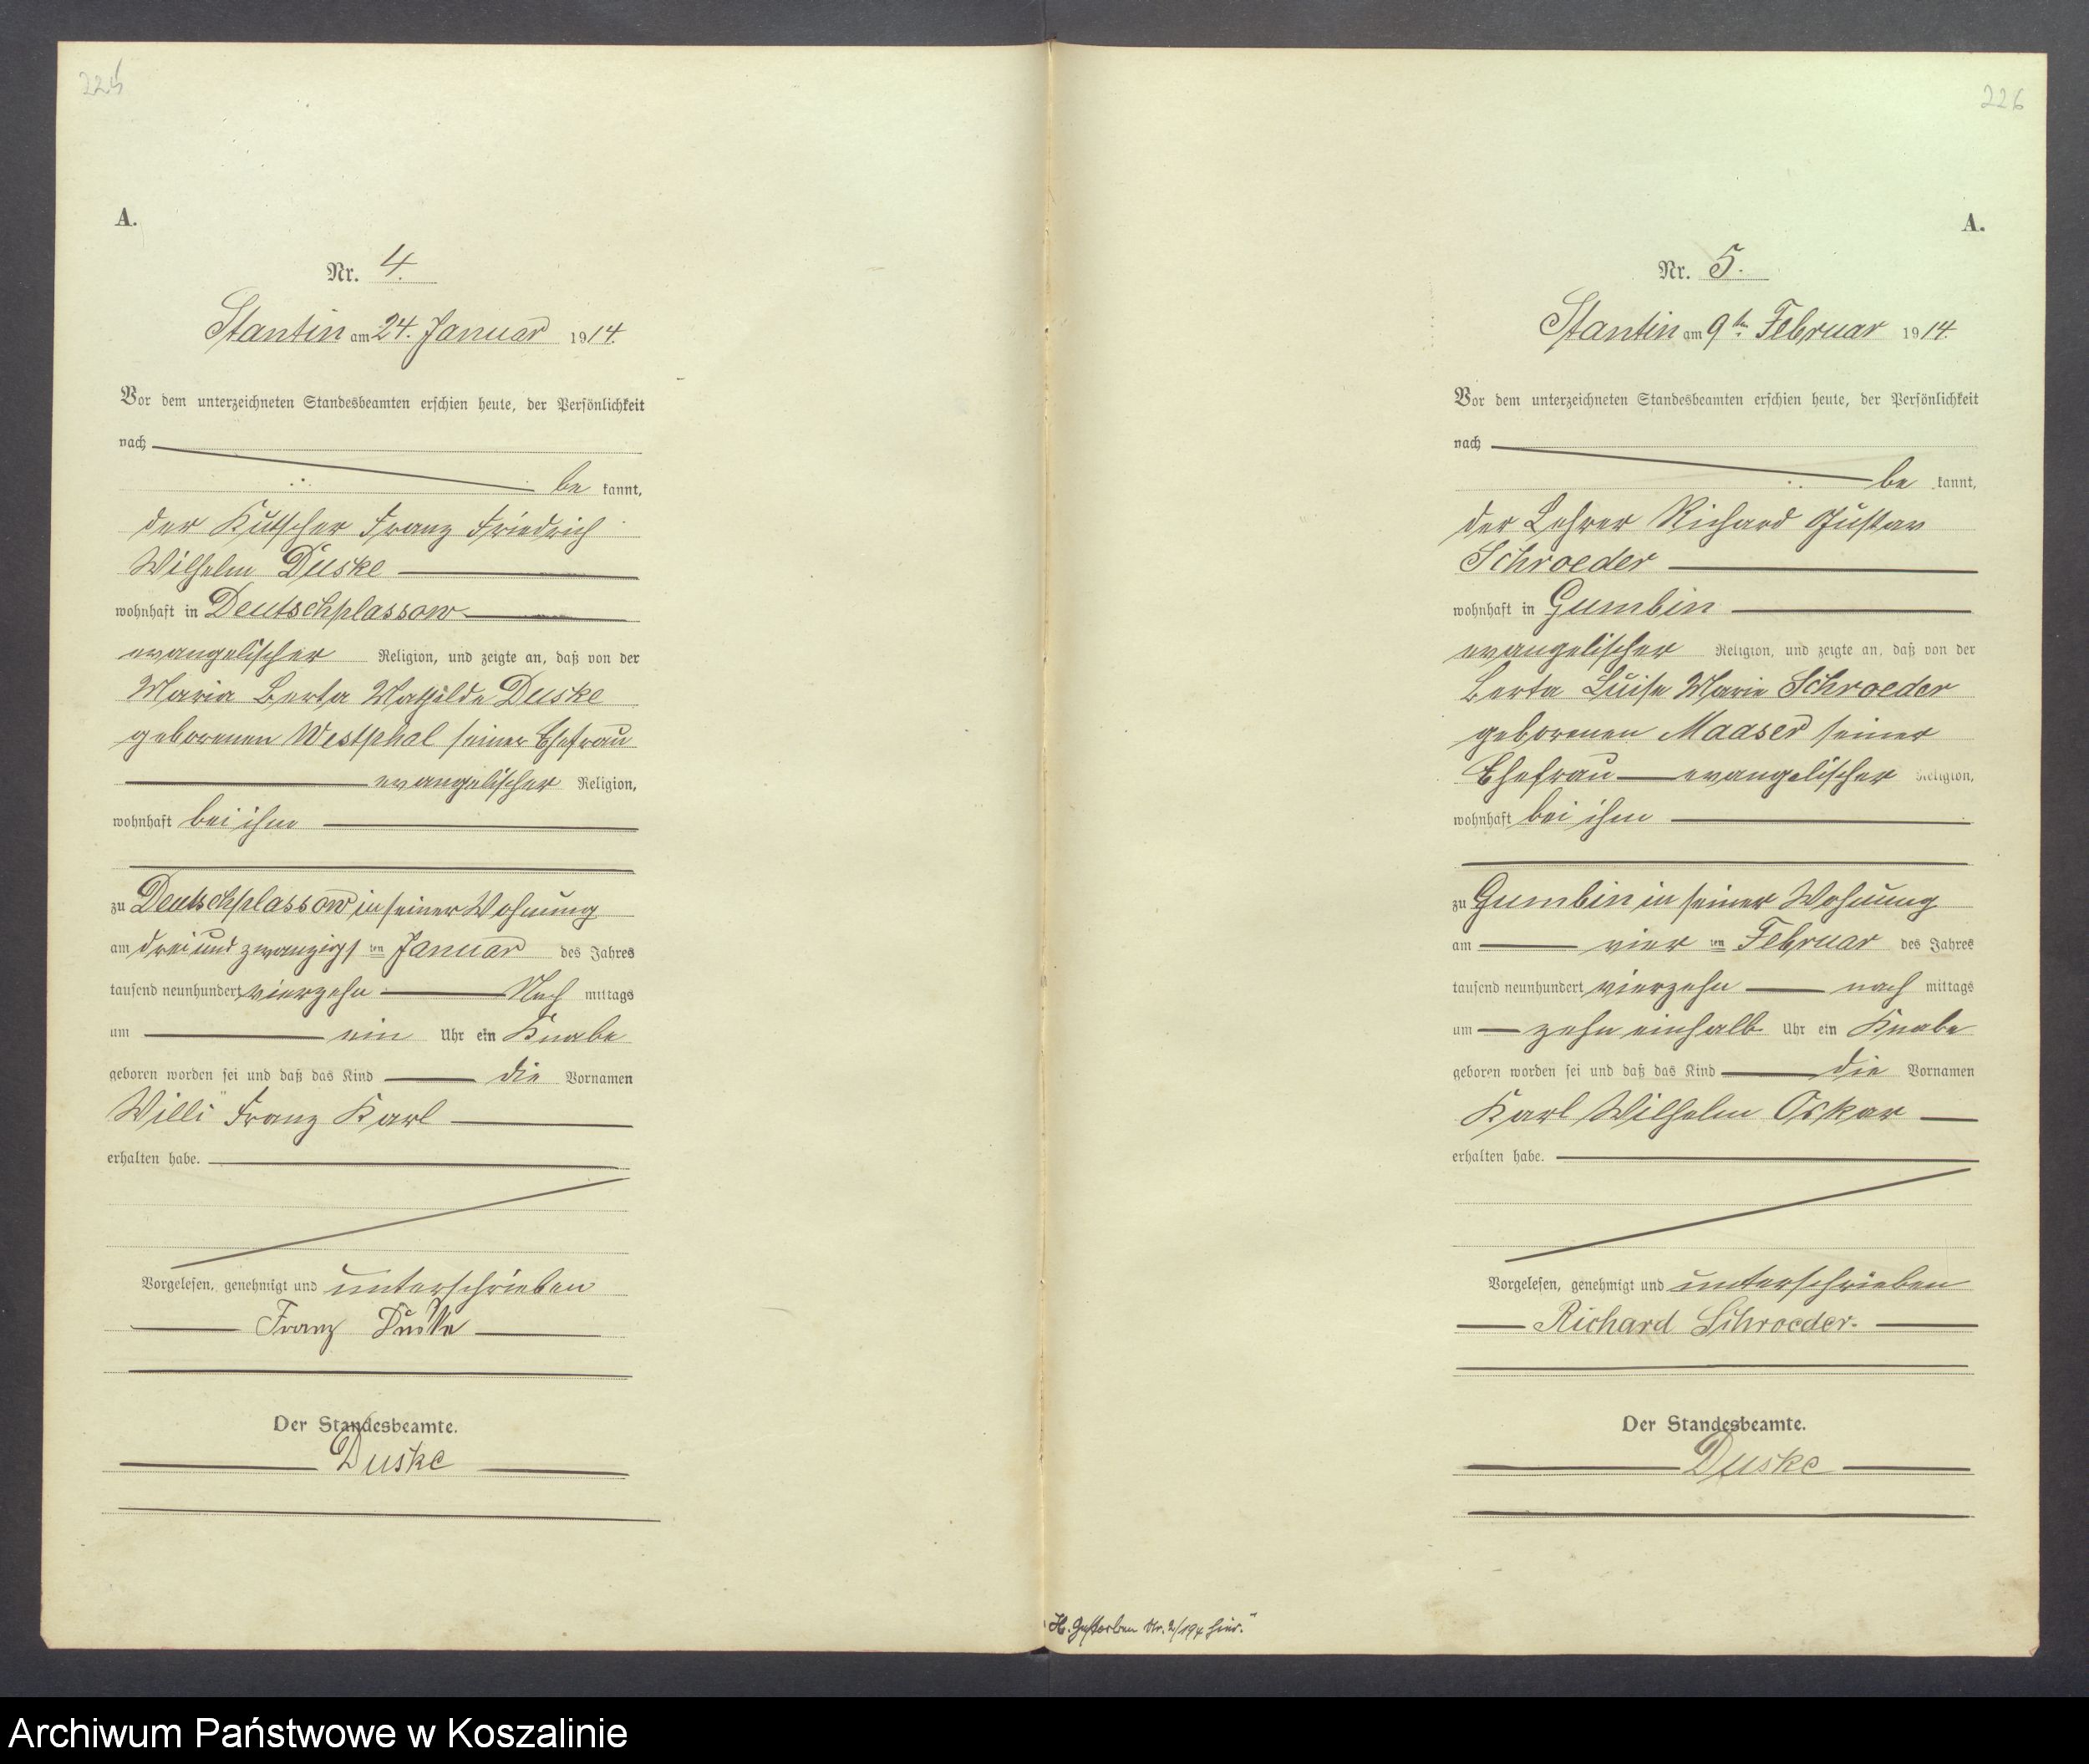 225
A.
Nr. 4.
Stantin am 24. Januar 1914.
Vor dem unterzeichneten Standesbeamten erschien heute, der Persönlichkeit
nach
be kannt,
der Kutscher Franz Friedrich
Wilhelm Duske
wohnhaft in Deutschplassow
evangelischer Religion, und zeigte an, daß von der
Maria Berta Mathilde Duske
geborenen Westphal seiner Ehefrau
evangelischer Religion,
wohnhaft bei ihm
zu Deutschplassow in seiner Wohnung
am dreiundzwanzigsten Januar des Jahres
tausend neunhundert vierzehn Nach mittags
um ein Uhr ein Knabe
geboren worden sei und daß das Kind die Vornamen
Willi Franz Karl
erhalten habe.
Vorgelesen, genehmigt und unterschrieben
Franz Duske
Der Standesbeamte.
Duske
226
A.
Nr. 5.
Stantin am 9ten Februar 1914.
Vor dem unterzeichneten Standesbeamten erschien heute, der Persönlichkeit
nach
be kannt,
der Lehrer Richard Gustav
Schroeder
wohnhaft in Gumbin
evangelischer Religion, und zeigte an, daß von der
Berta Luise Marie Schroeder
geborenen Maaser seiner
Ehefrau evangelischer Religion,
wohnhaft bei ihm
zu Gumbin in seiner Wohnung
am vierten Februar des Jahres
tausend neunhundert vierzehn nach mittags
um zehn einhalb Uhr ein Knabe
geboren worden sei und daß das Kind die Vornamen
Karl Wilhelm Oskar
erhalten habe.
Vorgelesen, genehmigt und unterschrieben
Richard Schroeder.
Der Standesbeamte.
Duske
H. Gestorben Nr. 2/194 hier."
Archiwum Państwowe w Koszalinie